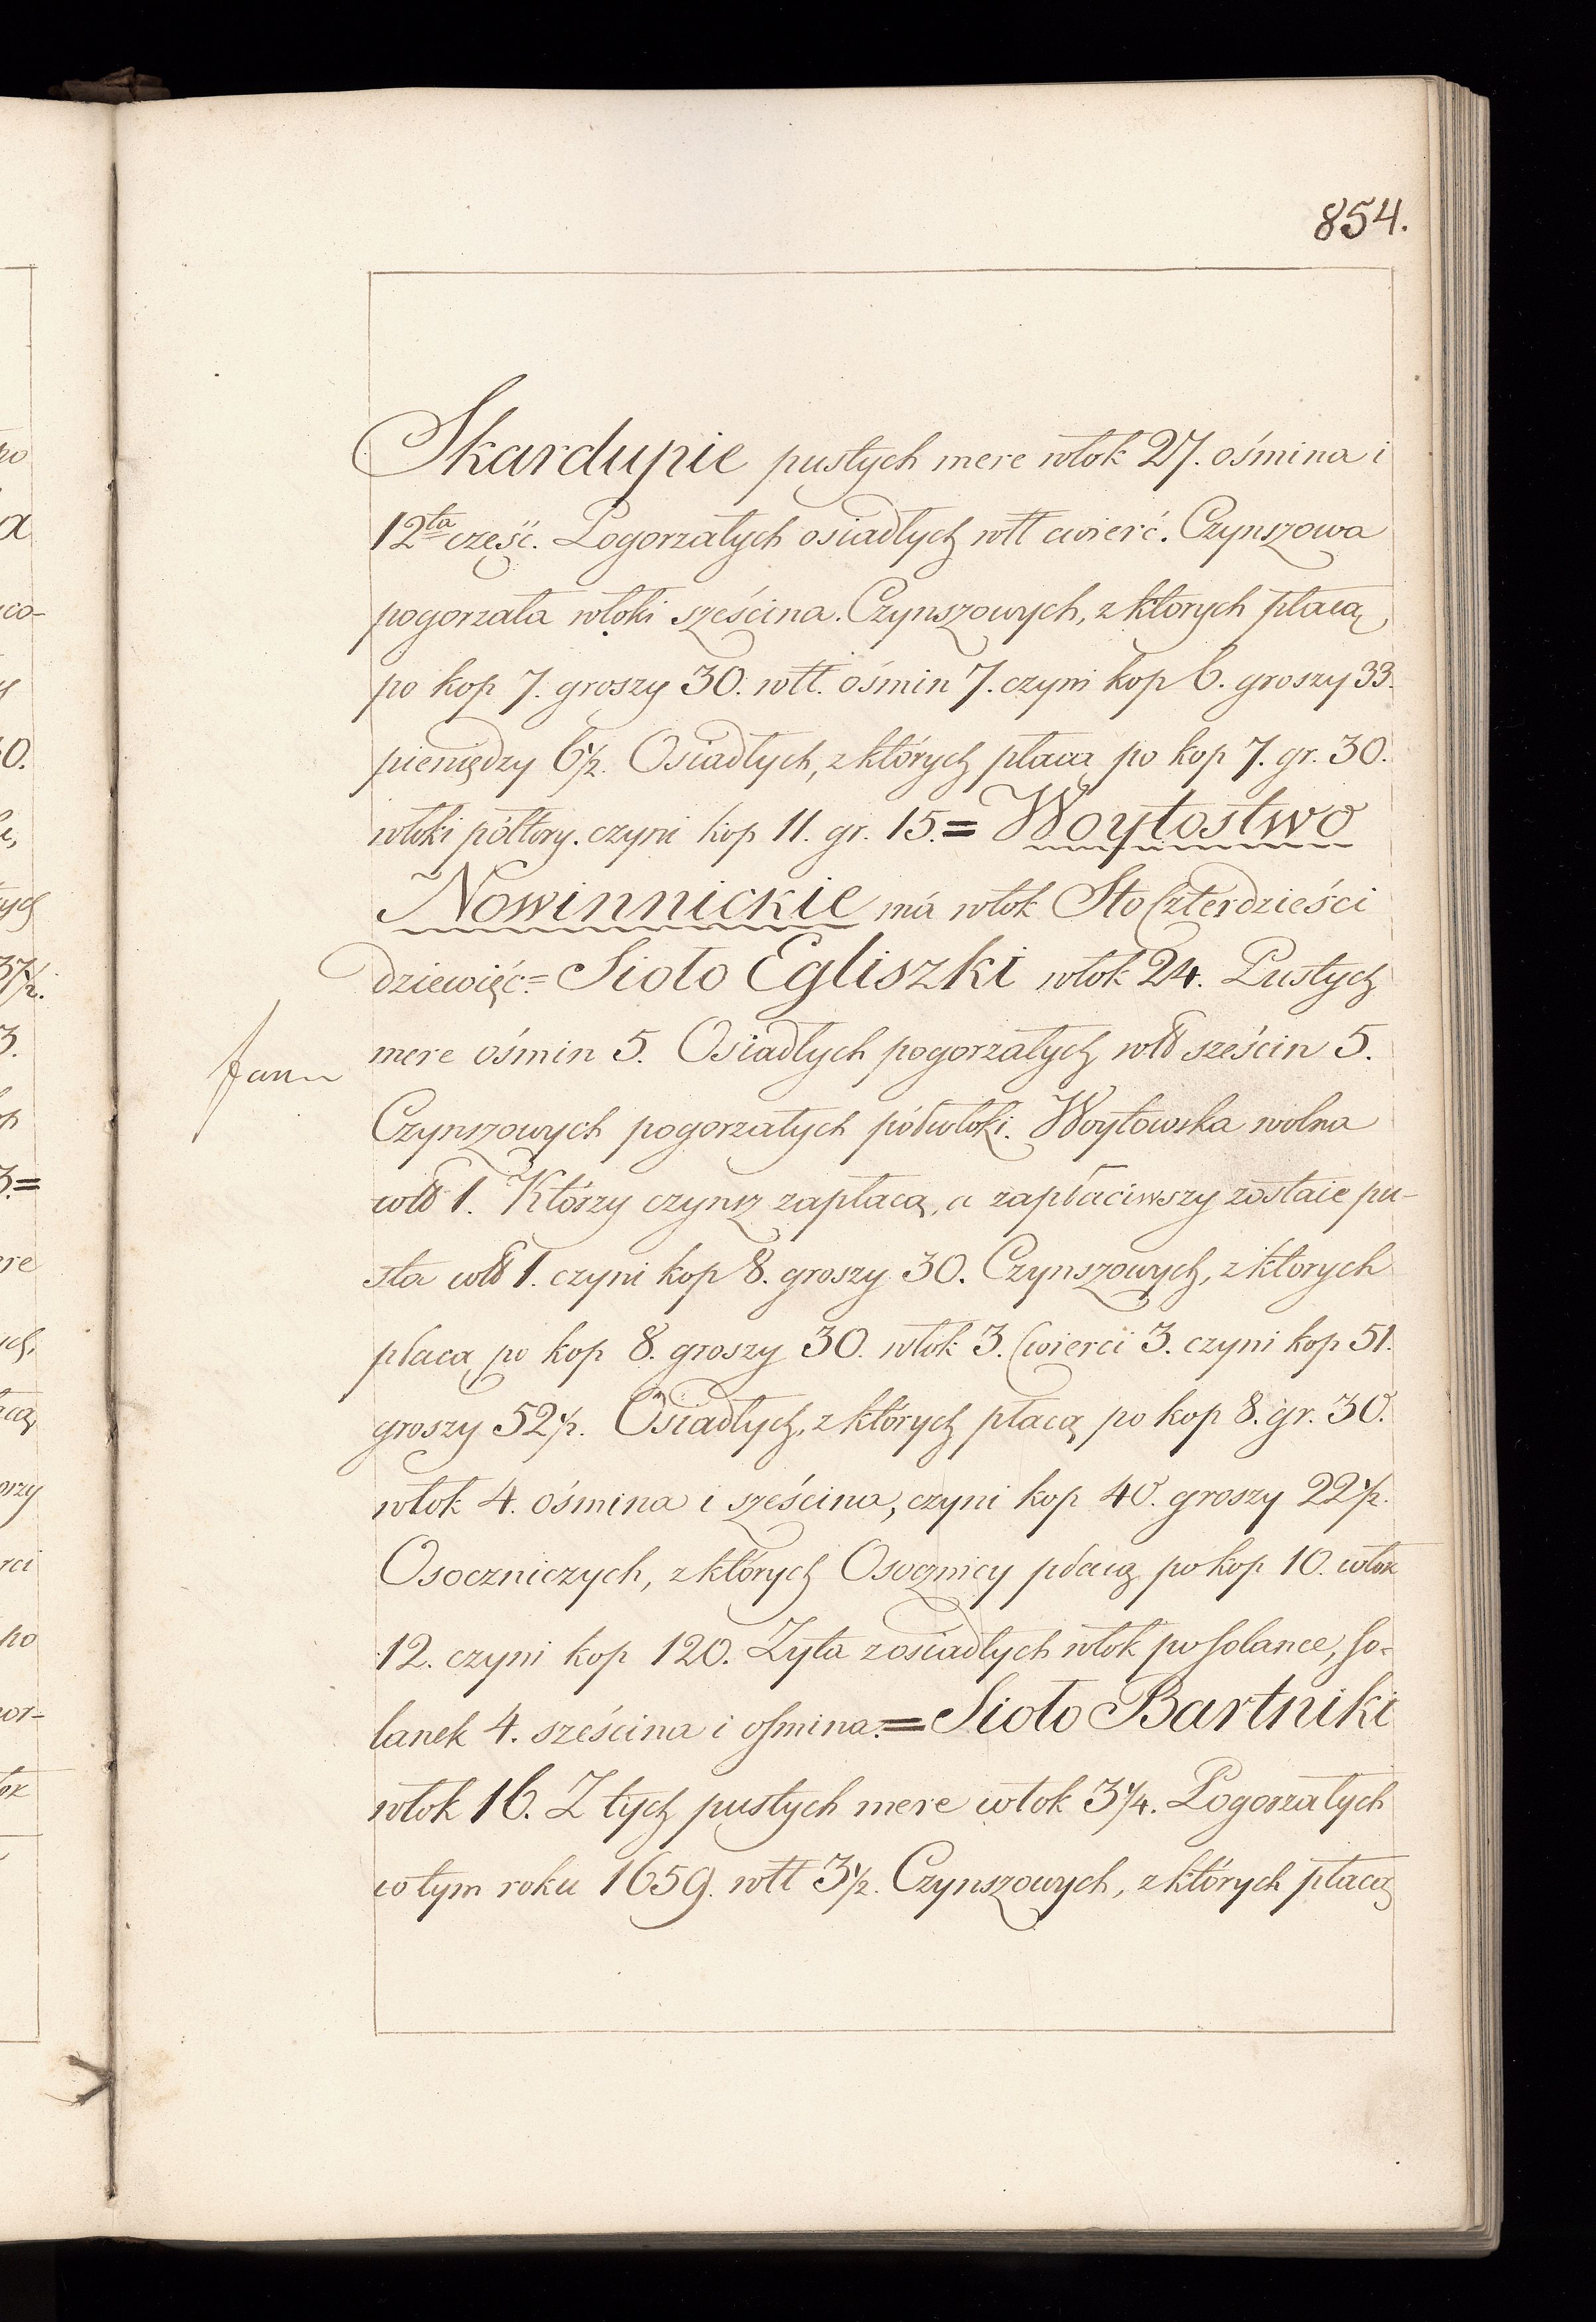 854.
Skardupie pustych mere włok 27. ośmina i
12ta część. Pogorzałych osiadłych włł cwierć. Czynszowa
pogorzała włoki sześcina. Czynszowych, z ktorych płacą
po kop 7. groszy 30. włł. ośmin 7. czyni kop 6. groszy 33.
pieniędzy 6½. Osiadłych, z których płacą po kop 7. gr. 30.
włoki półtory. czyni kop 11. gr. 15.= Woytostwo
Nowinnickie má włok Sto Czterdzieści
dziewięć.= Sioło Egliszki włok 24. Pustych
mere ośmin 5. Osiadłych pogorzałych włó sześcin 5.
Czynszowych pogorzałych półwłoki. Woytowska wolna
włó 1. Którzy czynsz zapłacą, a zapłaciwszy zostaie pu-
sta włó 1. czyni kop 8. groszy 30. Czynszowych, z ktorych
płacą po kop 8. groszy 30. włok 3. Cwierci 3. czyni kop 51.
groszy 52½. Osiadłych, z których płacą po kop 8. gr. 30.
włok 4. ośmina i sześcina, czyni kop 40. groszy 22½.
Osoczniczych, z których Osocznicy płacą po kop 10. włok
12. czyni kop 120. Żyta z osiadłych włok po solance, so-
lanek 4. sześcina i osmina.= Sioło Bartniki
włok 16. Z tych pustych mere włok 3¼. Pogorzałych
w tym roku 1659. włł 3½. Czynszowych, z których płacą